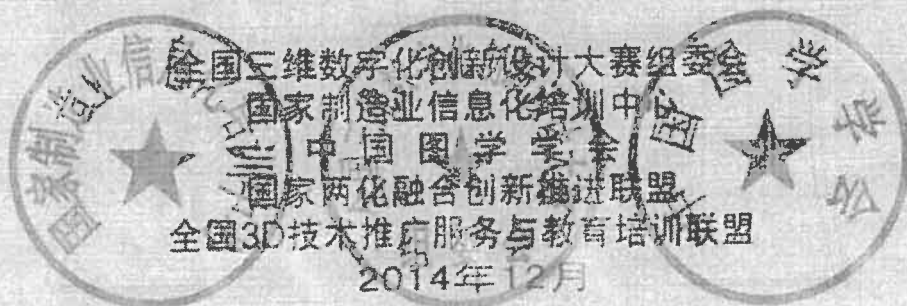 全国三维数字化创新设计大赛组委会
国家制造业信息化培训中心
中国图学学会
国家两化融合创新推进联盟
全国3D技术推广服务与教育培训联盟
2014年12月
国家制造业信息化
国图学学会